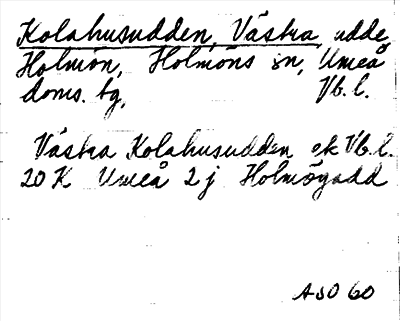 Kolahusudden, Västra, udde,
Holmön, Holmöns sn, Umeå
doms. tg, Vb. l.
Västra Kolahusudden ek Vb. l.
20 K Umeå 2 j Holmögadd
ASO 60